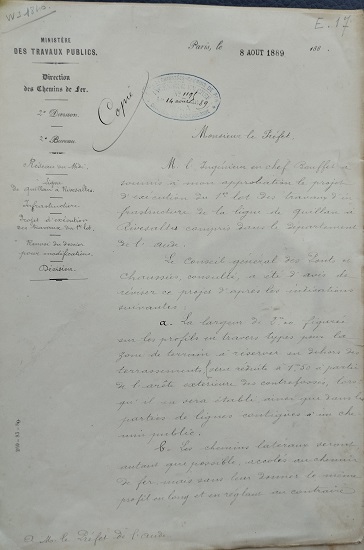 E. 17
MINISTÈRE
DES TRAVAUX PUBLICS.
Paris, le 8 AOUT 1889 188
Direction
des Chemins de Fer.
Copie
14 août 89
2e Division
2e Bureau
Monsieur le Préfet,
Réseau du Midi
Ligne
de Quillan à Rivesaltes.
Infrastructure
Projet d'exécution
des travaux du 1er lot.
Renvoi du dossier
pour modifications.
Décision.
M. l'Ingénieur en chef a
soumis à mon approbation le projet
d'exécution du 1er lot des travaux d'in
frastructure de la ligne de Quillan à
Rivesaltes compris dans le département
de l'Aude.
Le Conseil général des Ponts et
Chaussées, consulté, a été d'avis de
renvoyer ce projet d'après les indications
suivantes :
a. La largeur de 2m,00 figurée
sur les profils en travers types pour la
zone de terrain à réserver en dehors des
terrassements, sera réduite à 1m,50 à partir
de l'arête extérieure des contrefossés, lors
qu'il en sera établi ainsi que dans les
parties de lignes contiguës à un che
min public.
b. Les chemins latéraux seront
autant que possible, accolés au chemin
de fer mais sans leur donner le même
profil en long et en réglant au contraire
A M. le Préfet de l'Aude